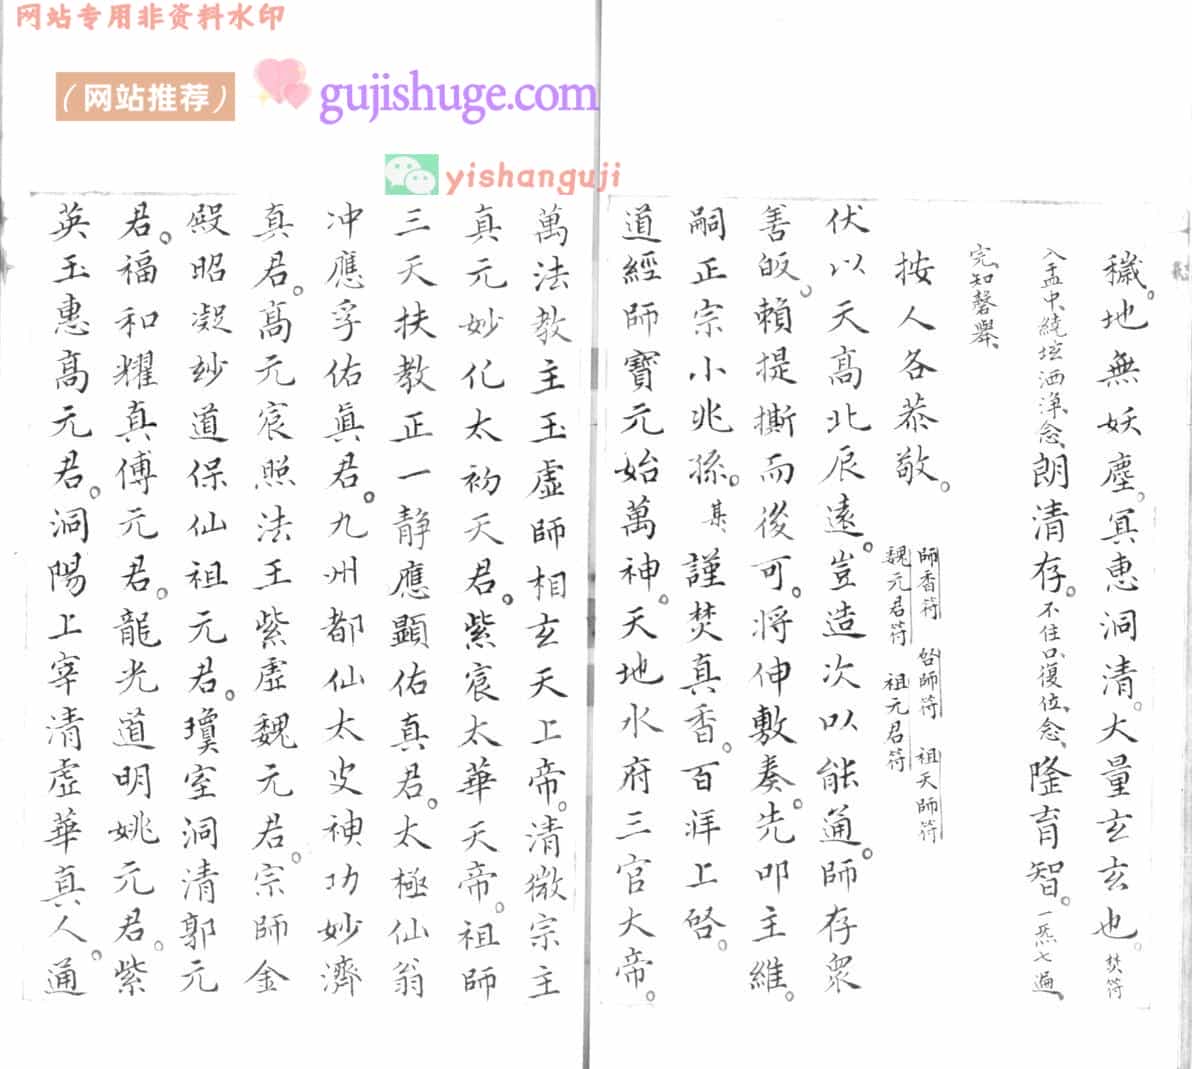 网站专用非资料水印
（网站推荐）
gujishuge.com
yishanguji
穢。地無妖塵。冥惠洞清。大量玄玄也。焚符
入盂中、繞壇洒淨、念、朗清存。不住口、復位、念、隆育智。一炁七遍、
完知磬舉、
按人各恭敬。
師香符 啓師符 祖天師符
魏元君符 祖元君符
伏以天高北辰遠。豈造次以能通。師存眾
善皈。賴提撕而後可。将伸敷奏。先叩主維。
嗣正宗小兆孫。某謹焚真香。百拜上啓。
道經師寶元始萬神。天地水府三官大帝。
萬法教主玉虛師相玄天上帝。清微宗主
真元妙化太初天君。紫宸太華天帝。祖師
三天扶教正一静應顯佑真君。太極仙翁
冲應孚佑真君。九州都仙太史神功妙濟
真君。高元宸照法王紫虛魏元君。宗師金
殿昭凝妙道保仙祖元君。瓊室洞清郭元
君。福和耀真傅元君。龍光道明姚元君。紫
英玉惠高元君。洞陽上宰清虛華真人。通